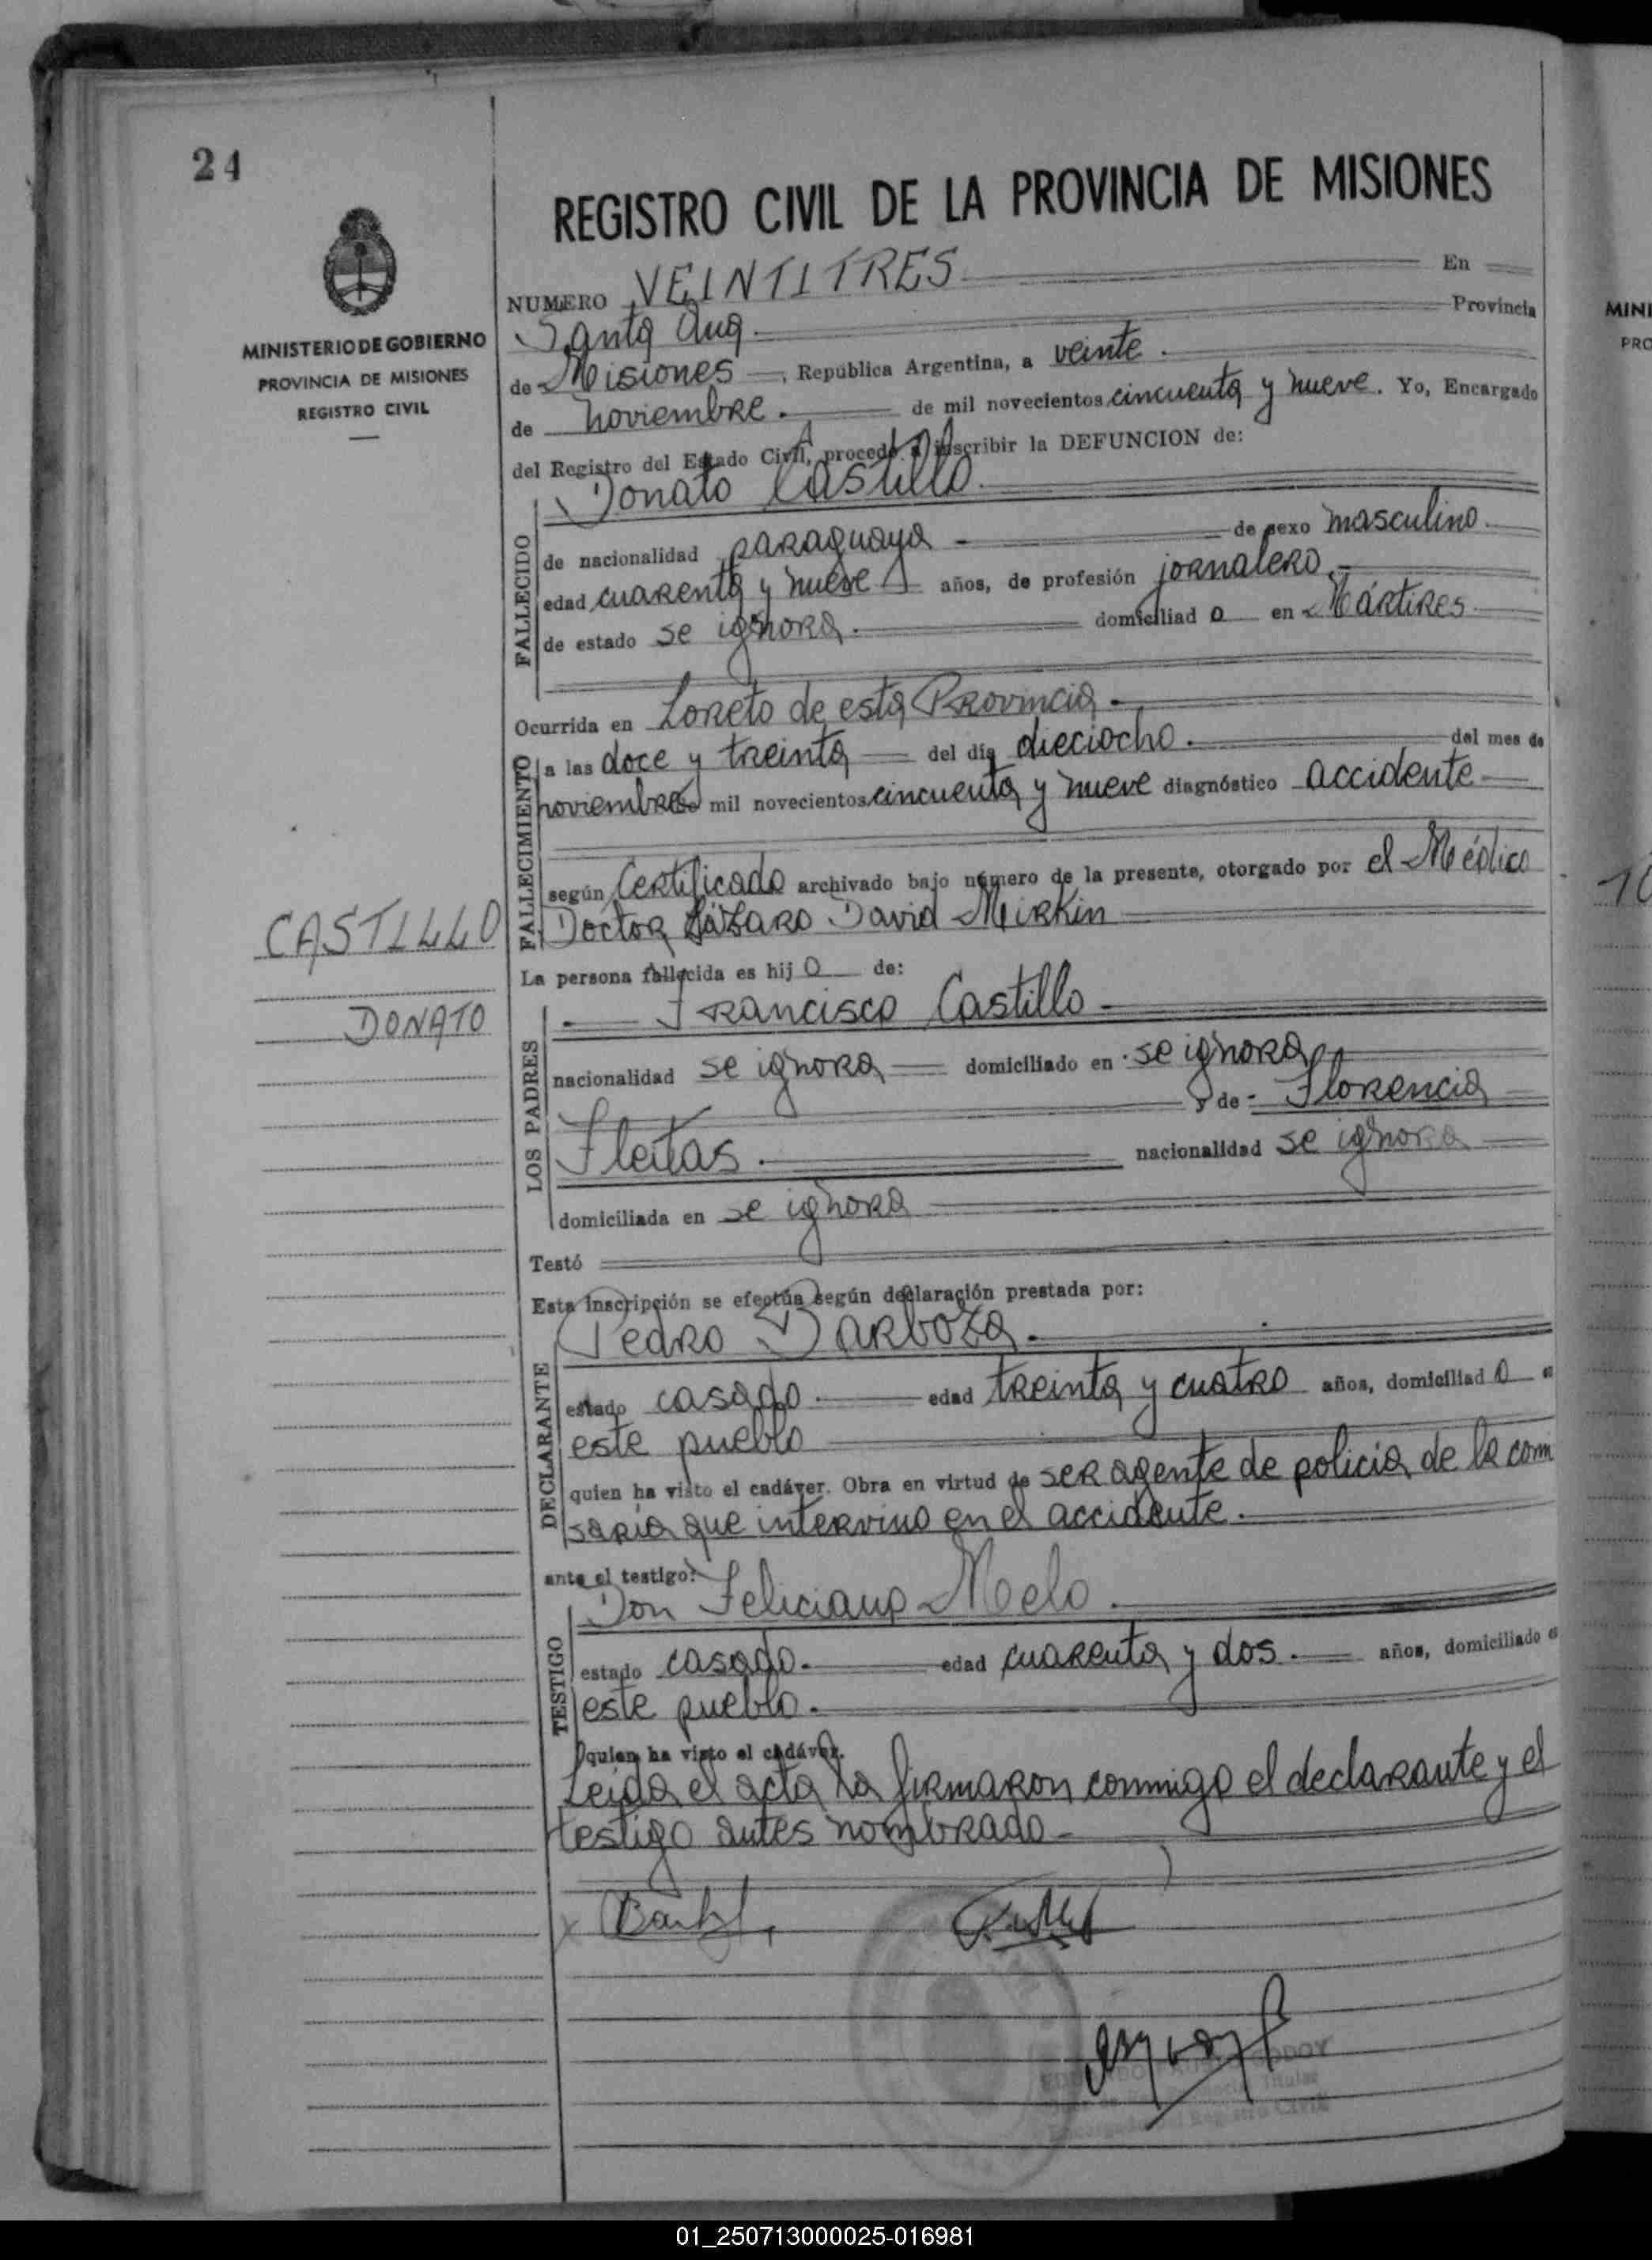 24
MINISTERIO DE GOBIERNO
PROVINCIA DE MISIONES
REGISTRO CIVIL
REGISTRO CIVIL DE LA PROVINCIA DE MISIONES
NUMERO VEINTITRES En
Santa Ana Provincia
de Misiones, República Argentina, a veinte.
de noviembre. de mil novecientos cincuenta y nueve. Yo, Encargado
del Registro del Estado Civil, procedo a inscribir la DEFUNCION de:
Donato Castillo.
FALLECIDO
de nacionalidad paraguaya de sexo masculino.
edad cuarenta y nueve años, de profesión jornalero.
de estado se ignora. domiciliad o en Mártires
Ocurrida en Loreto de esta Provincia.
FALLECIMIENTO
a las doce y treinta del día dieciocho. del mes de
noviembre de mil novecientos cincuenta y nueve diagnóstico accidente
según Certificado archivado bajo número de la presente, otorgado por el Médico
Doctor Lázaro David Mirkin
CASTILLO
DONATO
La persona fallecida es hij o de:
LOS PADRES
Francisco Castillo
nacionalidad se ignora domiciliado en se ignora
y de Florencia
Fleitas. nacionalidad se ignora
domiciliada en se ignora
Testó
Esta inscripción se efectúa según declaración prestada por:
DECLARANTE
Pedro Barboza.
estado casado. edad treinta y cuatro años, domiciliad o e
este pueblo
quien ha visto el cadáver. Obra en virtud de ser agente de policía de la comi
saría que intervino en el accidente.
ante el testigo:
TESTIGO
Don Feliciano Melo.
estado casado. edad cuarenta y dos. años, domiciliado e
este pueblo.
quien ha visto el cadáver.
Leída el acta la firmaron conmigo el declarante y el
testigo antes nombrado
GODOY
Titular
Encargado del Registro Civil
MINI
PRO
10
01_250713000025-016981